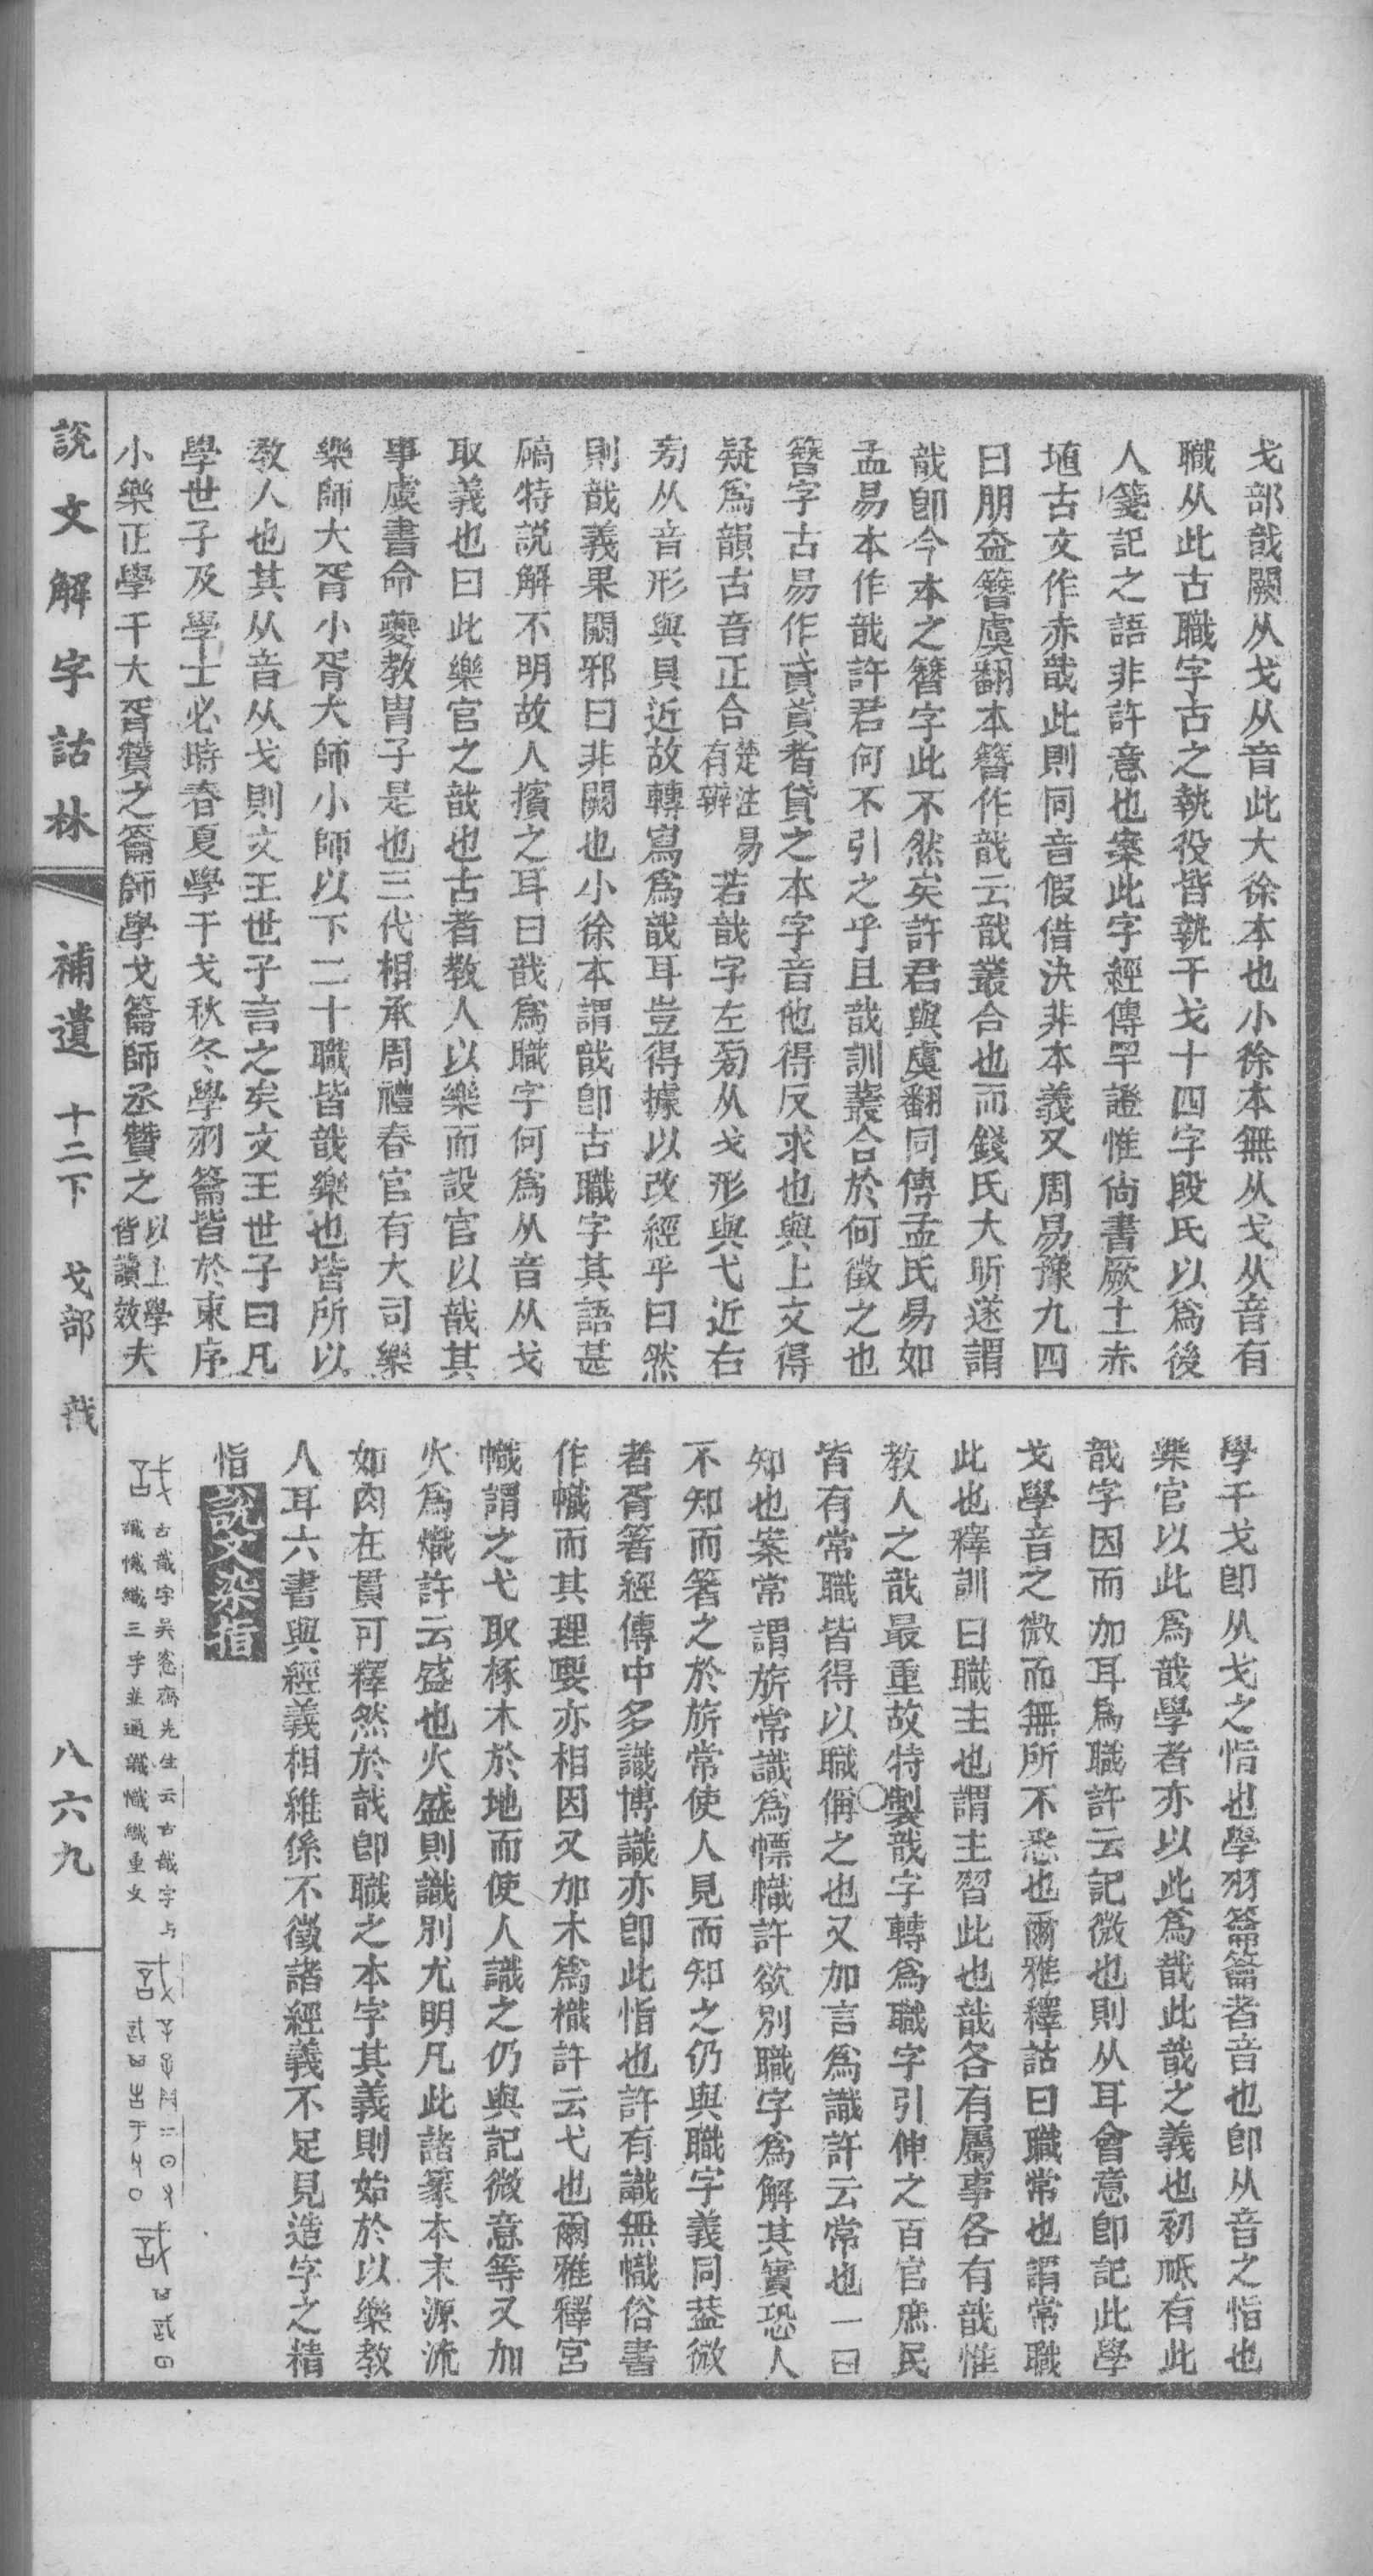 戈部戠闕从戈从音此大徐本也小徐本無从戈从音有
職从此古職字古之執役皆執干戈十四字段氏以爲後
人箋記之語非許意也案此字經傳罕證惟尙書厥土赤
埴古文作赤戠此則同音假借決非本義又周易豫九四
曰朋盍簪虞翻本簪作戠云戠叢合也而錢氏大昕遂謂
戠卽今本之簪字此不然矣許君與虞翻同傳孟氏易如
孟易本作戠許君何不引之乎且戠訓叢合於何徵之也
簪字古易作貣貣者貸之本字音他得反求也與上文得
疑爲韻古音正合楚注易有辨若戠字左㫄从戈形與弋近右
㫄从音形與貝近故轉寫爲戠耳豈得據以改經乎曰然
則戠義果闕邪曰非闕也小徐本謂戠卽古職字其語甚
碻特説解不明故人擯之耳曰戠爲職字何爲从音从戈
取義也曰此樂官之戠也古者教人以樂而設官以戠其
事虞書命夔教胄子是也三代相承周禮春官有大司樂
樂師大胥小胥大師小師以下二十職皆戠樂也皆所以
教人也其从音从戈則文王世子言之矣文王世子曰凡
學世子及學士必時春夏學干戈秋冬學羽籥皆於東序
小樂正學干大胥贊之籥師學戈籥師丞贊之以上學皆讀效夫
學干戈卽从戈之恉也學羽籥籥者音也卽从音之恉也
樂官以此爲戠學者亦以此爲戠此戠之義也初祇有此
戠字因而加耳爲職許云記微也則从耳會意卽記此學
戈學音之微而無所不悉也爾雅釋詁曰職常也謂常職
此也釋訓曰職主也謂主習此也戠各有屬事各有戠惟
教人之戠最重故特製戠字轉爲職字引伸之百官庶民
皆有常職皆得以職偁之也又加言爲識許云常也一曰
知也案常謂旂常識爲幖幟許欲別職字爲解其實恐人
不知而箸之於旂常使人見而知之仍與職字義同葢微
者胥箸經傳中多識博識亦卽此恉也許有識無幟俗書
作幟而其理要亦相因又加木爲樴許云弋也爾雅釋宮
樴謂之弋取椓木於地而使人識之仍與記微意等又加
火爲熾許云盛也火盛則識別尤明凡此諸篆本末源流
如肉在貫可釋然於戠卽職之本字其義則始於以樂教
人耳六書與經義相維係不徵諸經義不足見造字之精
恉說文
古戠字吳愙齋先生云古戠字与
識幟織三字並通識幟織重文
説文解字詁林 補遺 十二下 戈部 戠 八六九